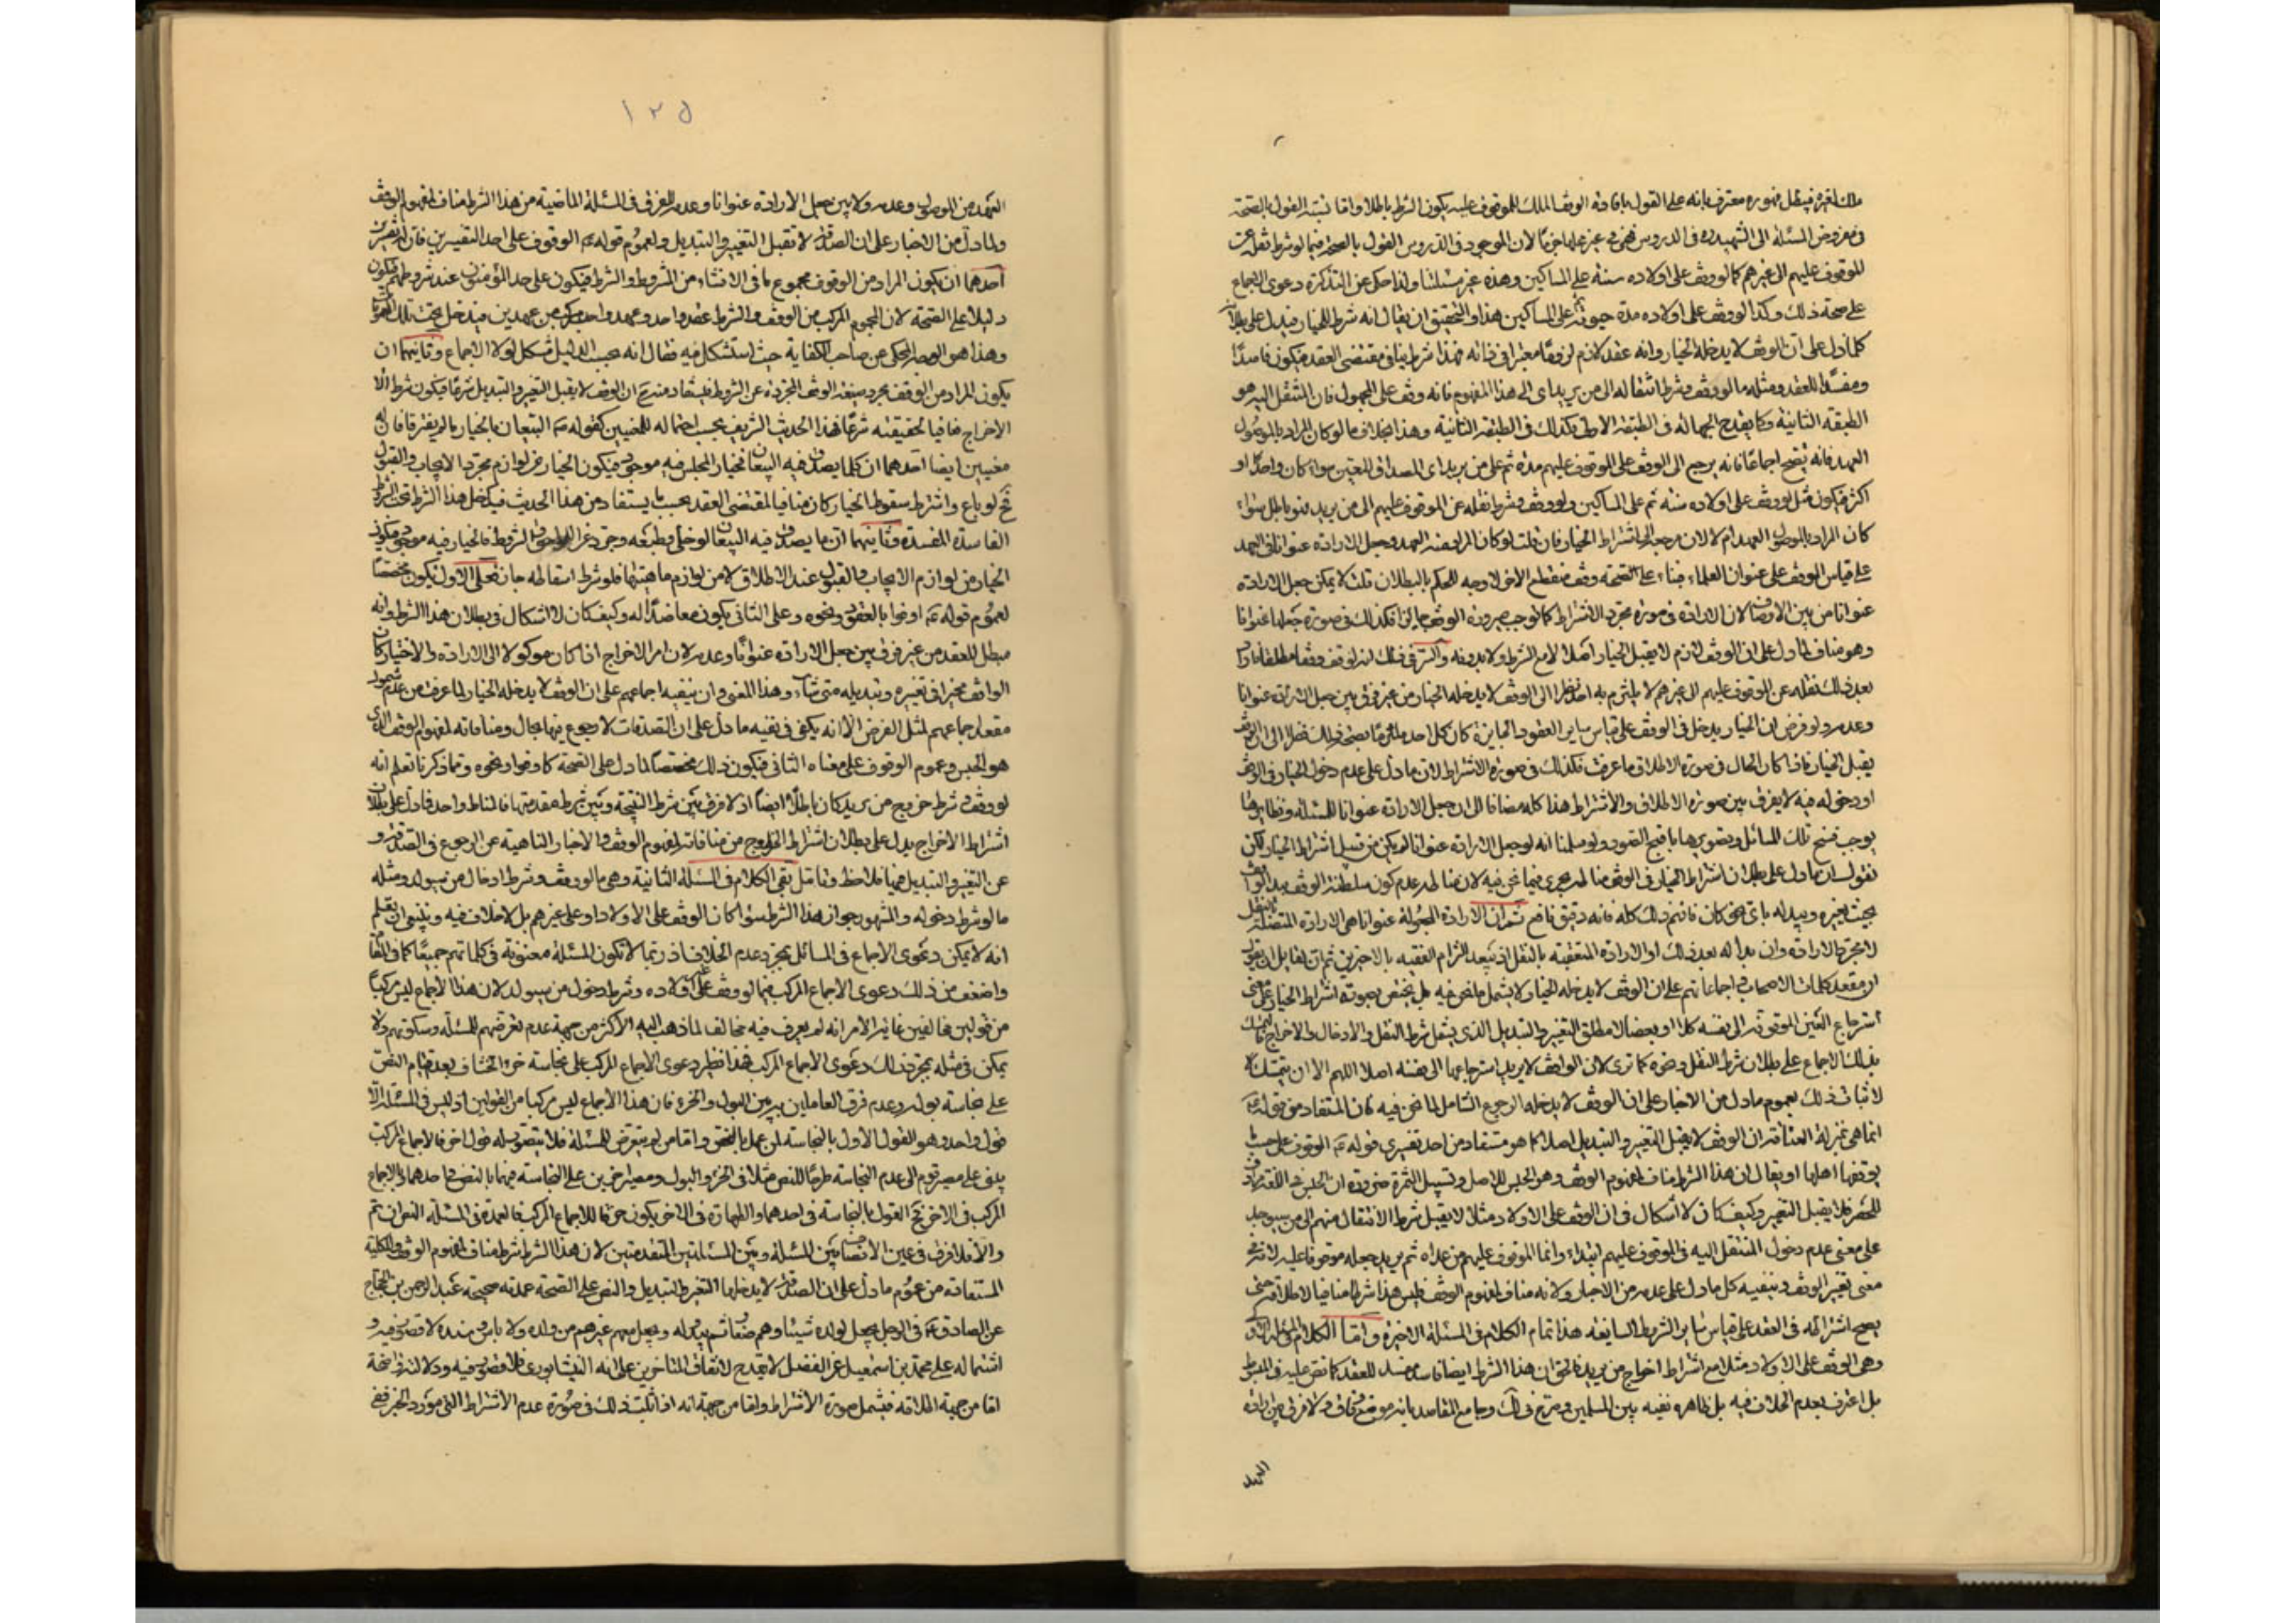 ملك لغيره فيظل فهو ره معترف بانه على القول بافادة الوقف الملك للموقوف عليه يكون الشرط باطلا واما نسبة القول بالصحة
في مفروض المسئلة الى الشهيد ره في الدروس فهي في غير محلها جزما لان الموجود في الدروس القول بالصحة فيما لو شرط نقله عن
الموقوف عليهم الى غيرهم كما لو وقف على اولاده سنة على المساكين وهذه غير مسئلتنا ولذا حكى عن التذكرة دعوى الاجماع
على صحة ذلك وكذا لو وقف على اولاده مدة حيوته ثم على المساكين هذا والتحقيق ان يقال انه شرط للخيار فيدل على بطلانه
كلما دل على ان الوقف لا يدخله الخيار وانه عقد لازم لزوما معتبرا في ذاته فهذا شرط ينافي مقتضى العقد فيكون فاسدا
ومفسدا للعقد ومثله ما لو وقف وشرط انتقاله الى من يريد اي الى هذا المفهوم فانه وقف على المجهول فان المنتقل اليه هو
الطبقة الثانية وكما يقدح الجهالة في الطبقة الاولى كذلك في الطبقة الثانية وهذا بخلاف ما لو كان المراد بالموصول
العهد فانه يصح اجماعا فانه يرجع الى الوقف على الموقوف عليهم مدة ثم على من يريد اي المصداق المعين سواء كان واحدا او
اكثر فيكون مثل لو وقف على اولاده سنة ثم على المساكين ولو وقف وشرط نقله عن الموقوف عليهم الى من يريد فهو باطل سواء
كان المراد بالموصول العهد ام لا لان مرجعه الى اشتراط الخيار فان قلت لو كان المراد منه العهد وجعل الارادة عنوانا في العهد
على قياس الوقف على عنوان العلماء فبناء على الصحة وقف منقطع الاخر لا وجه للحكم بالبطلان قلت لا يمكن جعل الارادة
عنوانا من بين الاوصاف لان الارادة في صورة مجرد الاشتراط كما توجب صيرورة الوقف جايزا فكذلك في صورة جعلها عنوانا
وهو مناف لما دل على ان الوقف لازم لا يقبل الخيار اصلا لا مع الشرط ولا بدونه والسر في ذلك انه لو وقف وقفا مطلقا فاراد
بعد ذلك نقله عن الموقوف عليهم الى غيرهم لا يلتزم به احد نظرا الى ان الوقف لا يدخله الخيار من غير فرق بين جعل الارادة عنوانا
وعدمه ولو فرض ان الخيار يدخل في الوقف على قياس ساير العقود الجايزة كان كل احد ملتزما بصحة ذلك نظرا الى ان الوقف
يقبل الخيار فاذا كان الحال في صورة الاطلاق ما عرفت فكذلك في صورة الاشتراط لان ما دل على عدم دخول الخيار في الوقف
او دخوله فيه لا يفرق بين صورة الاطلاق والاشتراط هذا كله مضافا الى ان جعل الارادة عنوانا للمسئلة ونظايرها
يوجب فتح تلك المسائل وتصويرها باقبح الصور ولو سلمنا انه لو جعل الارادة عنوانا لم يكن من قبيل اشتراط الخيار لكن
نقول ان ما دل على بطلان اشتراط الخيار في الوقف مناطه يجري فيما نحن فيه لان مناطه عدم كون سلطنة الوقف بيد الواقف
بحيث يغيره ويبدله باي نحو كان فافهم ذلك كله فانه دقيق نافع ثم ان الارادة المجعولة عنوانا هي الارادة المتصلة بالنقل
لا مجرد الارادة وان بدا له بعد ذلك او الارادة المتعقبة بالنقل اذ يبعد التزام الفقيه بالاخيرين ثم ان لقايل ان يقول
ان معقد كلمات الاصحاب واجماعاتهم على ان الوقف لا يدخله الخيار لا يشمل ما نحن فيه بل يختص بصورة اشتراط الخيار على معنى
استرجاع العين الموقوفة الى نفسه كلا او بعضا لا مطلق التغيير والتبديل الذي يشمل شرط النقل والادخال والاخراج فالتمسك
بذلك الاجماع على بطلان شرط النقل وغيره كما ترى لان الواقف لا يريد استرجاعها الى نفسه اصلا اللهم الا ان يتمسك
لاثبات ذلك بعموم ما دل من الاخبار على ان الوقف لا يدخله الرجوع الشامل لما نحن فيه فان المستفاد من قوله ع
انما هي بمنزلة العتاقة ان الوقف لا يقبل التغيير والتبديل اصلا كما هو مستفاد من احد تفسيري قوله ع الوقوف على حسب
يوقفها اهلها او يقال ان هذا الشرط مناف لمفهوم الوقف وهو الحبس للاصل وتسبيل الثمرة ضرورة ان الحبس في اللغة مرادف
للحصر فلا يقبل التغيير وكيف كان لا اشكال في ان الوقف على الاولاد مثلا لا يقبل شرط الانتقال منهم الى من سيوجد
على معنى عدم دخول المنتقل اليه في الموقوف عليهم ابتداء وانما الموقوف عليهم من عداه ثم يريد جعله موقوفا عليه لانه
معنى تغيير الوقف وينفيه كل ما دل على عدمه من الاخبار ولانه مناف لمفهوم الوقف فليس هذا شرطا منافيا لاطلاقه حتى
يصح اشتراطه في العقد على قياس ساير الشروط السايغة هذا تمام الكلام في المسئلة الاخيرة واما الكلام في المسئلة الاولى
وهي الوقف على الاولاد مثلا مع اشتراط اخراج من يريد فالحق ان هذا الشرط ايضا فاسد مفسد للعقد كما نص عليه في المبسوط
بل اعترف بعدم الخلاف فيه بل ظاهره نفيه بين المسلمين وصرح في لك وجامع المقاصد بانه موضع وفاق ولا فرق بين ارادة
العهد
١٢٥
العهد من الموصول وعدمه ولا بين جعل الارادة عنوانا وعدمه للفرق في المسئلة الماضية من هذا الشرط مناف لمفهوم الوقف
ولما دل من الاخبار على ان الصدقة لا تقبل التغيير والتبديل ولعموم قوله ع الوقوف على احد التفسيرين فان له تفسيرين
احدهما ان يكون المراد من الوقوف مجموع ما في الانشاء من المشروط والشرط فيكون على حد المؤمنون عند شروطهم فيكون
دليلا على الصحة لان المجموع المركب من الوقف والشرط عقد واحد وعهد واحد مركب من عهدين فيدخل تحت تلك العمومات
وهذا هو الوجه المحكي عن صاحب الكفاية حيث استشكل فيه فقال انه بحسب الدليل مشكل لولا الاجماع وثانيهما ان
يكون المراد من الوقف مجرد صيغة الوقف المجردة عن الشروط فيستفاد منه ح ان الوقف لا يقبل التغيير والتبديل شرعا فيكون شرط
الاخراج منافيا لحقيقته شرعا فهذا الحديث الشريف بحسب احتماله للمعنيين كقوله ع البيعان بالخيار ما لم يفترقا فان له
معنيين ايضا احدهما ان كلما يصدق فيه البيعان فخيار المجلس فيه موجود فيكون الخيار من لوازم مجرد الايجاب والقبول
فح لو باع واشترط سقوط الخيار كان منافيا لمقتضى العقد بحسب ما يستفاد من هذا الحديث فيدخل هذا الشرط تحت الشروط
الفاسدة المفسدة وثانيهما ان ما يصدق فيه البيعان لو خلى وطبعه وجرد عن اللواحق والشروط فالخيار فيه موجود فيكون
الخيار من لوازم الايجاب والقبول عند الاطلاق لا من لوازم ماهيتها فلو شرط اسقاطه جاز فعلى الاول يكون مخصصا
لعموم قوله ع اوفوا بالعقود ونحوه وعلى الثاني يكون معاضدا له وكيف كان لا اشكال في بطلان هذا الشرط وانه
مبطل للعقد من غير فرق بين جعل الارادة عنوانا وعدمه لان امر الاخراج اذا كان موكولا الى الارادة والاختيار كان
الواقف مخيرا في تغييره وتبديله متى شاء وهذا المعنى وان ينفيه اجماعهم على ان الوقف لا يدخله الخيار لما عرفت من عدم شمول
معقد اجماعهم لمثل الفرض الا انه يكفي في نفيه ما دل على ان الصدقات لا رجوع فيها بحال ومنافاته لمفهوم الوقف الذي
هو الحبس وعموم الوقوف على معناه الثاني فيكون ذلك مخصصا لما دل على الصحة كاوفوا ونحوه ومما ذكرنا تعلم انه
لو وقف وشرط خروج من يريد كان باطلا ايضا اذ لا فرق بين شرط النتيجة وبين شرط مقدمتها فالمناط واحد فما دل على بطلان
اشتراط الاخراج يدل على بطلان اشتراط الخروج من منافاته لمفهوم الوقف والاخبار الناهية عن الرجوع في الصدقة و
عن التغيير والتبديل فيها فلاحظ وتامل بقي الكلام في المسئلة الثانية وهي ما لو وقف وشرط ادخال من سيولد ومثله
ما لو شرط دخوله والمشهور جواز هذا الشرط سواء كان الوقف على الاولاد او على غيرهم بل لا خلاف فيه وينبغي ان يعلم
انه لا يمكن دعوى الاجماع في المسائل بمجرد عدم الخلاف اذ ربما لا تكون المسئلة معنونة في كلماتهم جميعا كما في المقام
واضعف من ذلك دعوى الاجماع المركب فيما لو وقف على اولاده وشرط دخول من سيولد لان هذا الاجماع ليس مركبا
من قولين مخالفين غاية الامر انه لم يعرف فيه مخالف لما ذهب اليه الاكثر من جهة عدم تعرضهم للمسئلة وسكوتهم ولا
يمكن في مثله بمجرد ذلك دعوى الاجماع المركب فهذا نظير دعوى الاجماع المركب على نجاسة خرء الخشاف بعد قيام النص
على نجاسة بوله وعدم فرق العاملين به بين البول والخرء فان هذا الاجماع ليس مركبا من القولين اذ ليس في المسئلة الا
قول واحد وهو القول الاول بالنجاسة لمن عمل بالنص واما من لم يتعرض للمسئلة فلا يتصور له قول اخر فالاجماع المركب
يبنى على مصير قوم الى عدم النجاسة طرحا للنص مثلا في الخرء والبول ومصير اخرين على النجاسة فيهما بالنص في احدهما وبالاجماع
المركب في الاخر فح القول بالنجاسة في احدهما والطهارة في الاخر يكون خرقا للاجماع المركب فالعمدة في المسئلة النص ان تم
والا فلا فرق في عين الانصاف بين المسئلة وبين المسئلتين المتقدمتين لان هذا الشرط شرط مناف لمفهوم الوقف والكلية
المستفادة من عموم ما دل على ان الصدقة لا يدخلها التغيير والتبديل والنص على الصحة عمدته صحيحة عبد الرحمن بن الحجاج
عن الصادق ع في الرجل يجعل لولده شيئا وهم صغار ثم يبدو له ويجعل معهم غيرهم من ولده ولا باس وسنده لا قصور فيه و
اشتماله على محمد بن اسمعيل عن الفضل لا يقدح لاتفاق المتاخرين على انه النيشابوري فلا قصور فيه ودلالته واضحة
اما من جهة اطلاقه فيشمل صورة الاشتراط واما من جهة انه اذا ثبت ذلك في صورة عدم الاشتراط التي مورد الخبر ففي